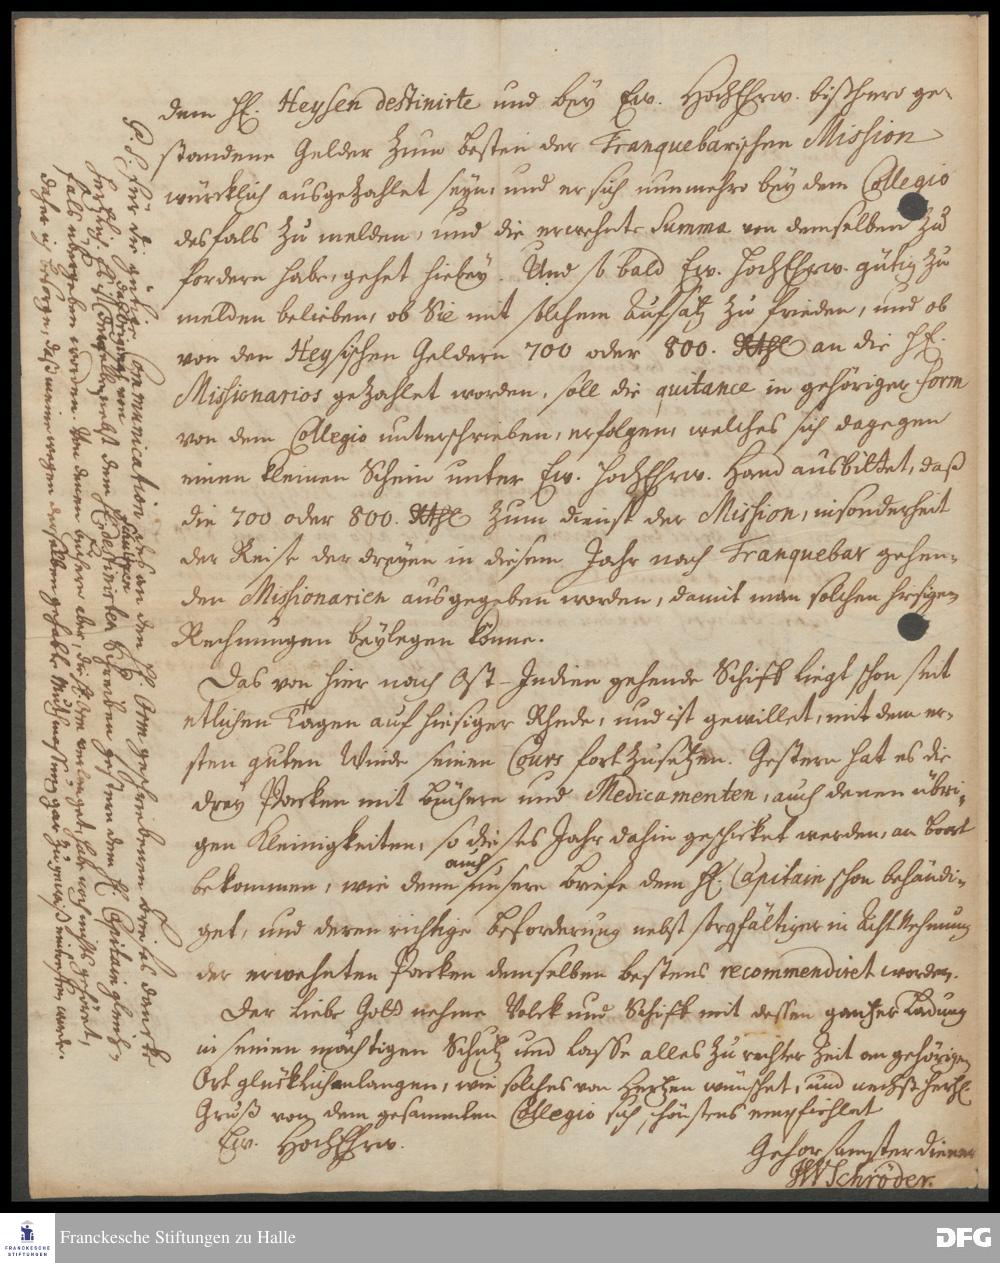 dem H. Heysen destinirte und bey Ew. HochEhrw. bißhero ge-
standene Gelder zum besten der Tranquebarischen Mission
würcklich ausgezahlet seyn, und er sich nunmehro bey dem Collegio
desfals zu melden, und die erwehnte Summa von demselben zu
fordern habe, gehet hiebey. Und so bald Ew. HochEhrw. gütig zu
melden belieben, ob Sie mit solchem Aufsatz zu frieden, und ob
von den Heysischen Geldern 700 oder 800. Rthl an die HH.
Missionarios gezahlet worden, soll die quitance in gehöriger Form
von dem Collegio unterschrieben, erfolgen, welches sich dagegen
einen kleinen Schein unter Ew. HochEhrw. Hand ausbittet, daß
die 700 oder 800. Rthl zum dienst der Mission, insonderheit
der Reise der dreyen in diesem Jahr nach Tranquebar gehen-
den Missionarien ausgegeben worden, damit man solchen hiesigen
Rechnungen beylegen könne.
Das von hier nach Ost-Indien gehende Schiff liegt schon seit
etlichen Tagen auf hiesiger Rhede, und ist gewillet, mit dem er-
sten guten Winde seinen Cours fortzusetzen. Gestern hat es die
drey Packen mit Büchern und Medicamenten, auch denen übri-
gen Kleinigkeiten, so dieses Jahr dahin geschicket werden, an Boort
bekommen, wie denn auch unsere briefe dem H. Capitain schon behändi-
get, und deren richtige beforderung nebst sorgfältiger in Acht Nehmung
der erwehnten Packen demselben bestens recommendiret worden.
Der Liebe Gott nehme Volck und Schiff mit dessen gantzer Ladung
in seinen mächtigen Schutz und lasse alles zu rechter Zeit an gehörigen
Ort glücklich anlangen, wie solches von Hertzen wünschet, und nechst hertzl.
Gruß von dem gesammten Collegio sich schönstens empfiehlet
Ew. HochEhrw.
Gehorsamster diener
JWSchröder.
P. S. Für die gütige Communication des an den H. geschriebenen briefes dancke
hertzlich. das Original von demselben nebst dem destinirten Schreiben gestern dem H. Capitain gleich-
fals übergeben worden. Von denen büchern aber, die verlanget, habe noch nichts gehöret,
daher ich besorge, daß meine wegen derselben gehabte Muthmassung gar zu gewiß eintreffen werde.
Franckesche Stiftungen zu Halle
FRANCKESCHE
STIFTUNGEN
DFG